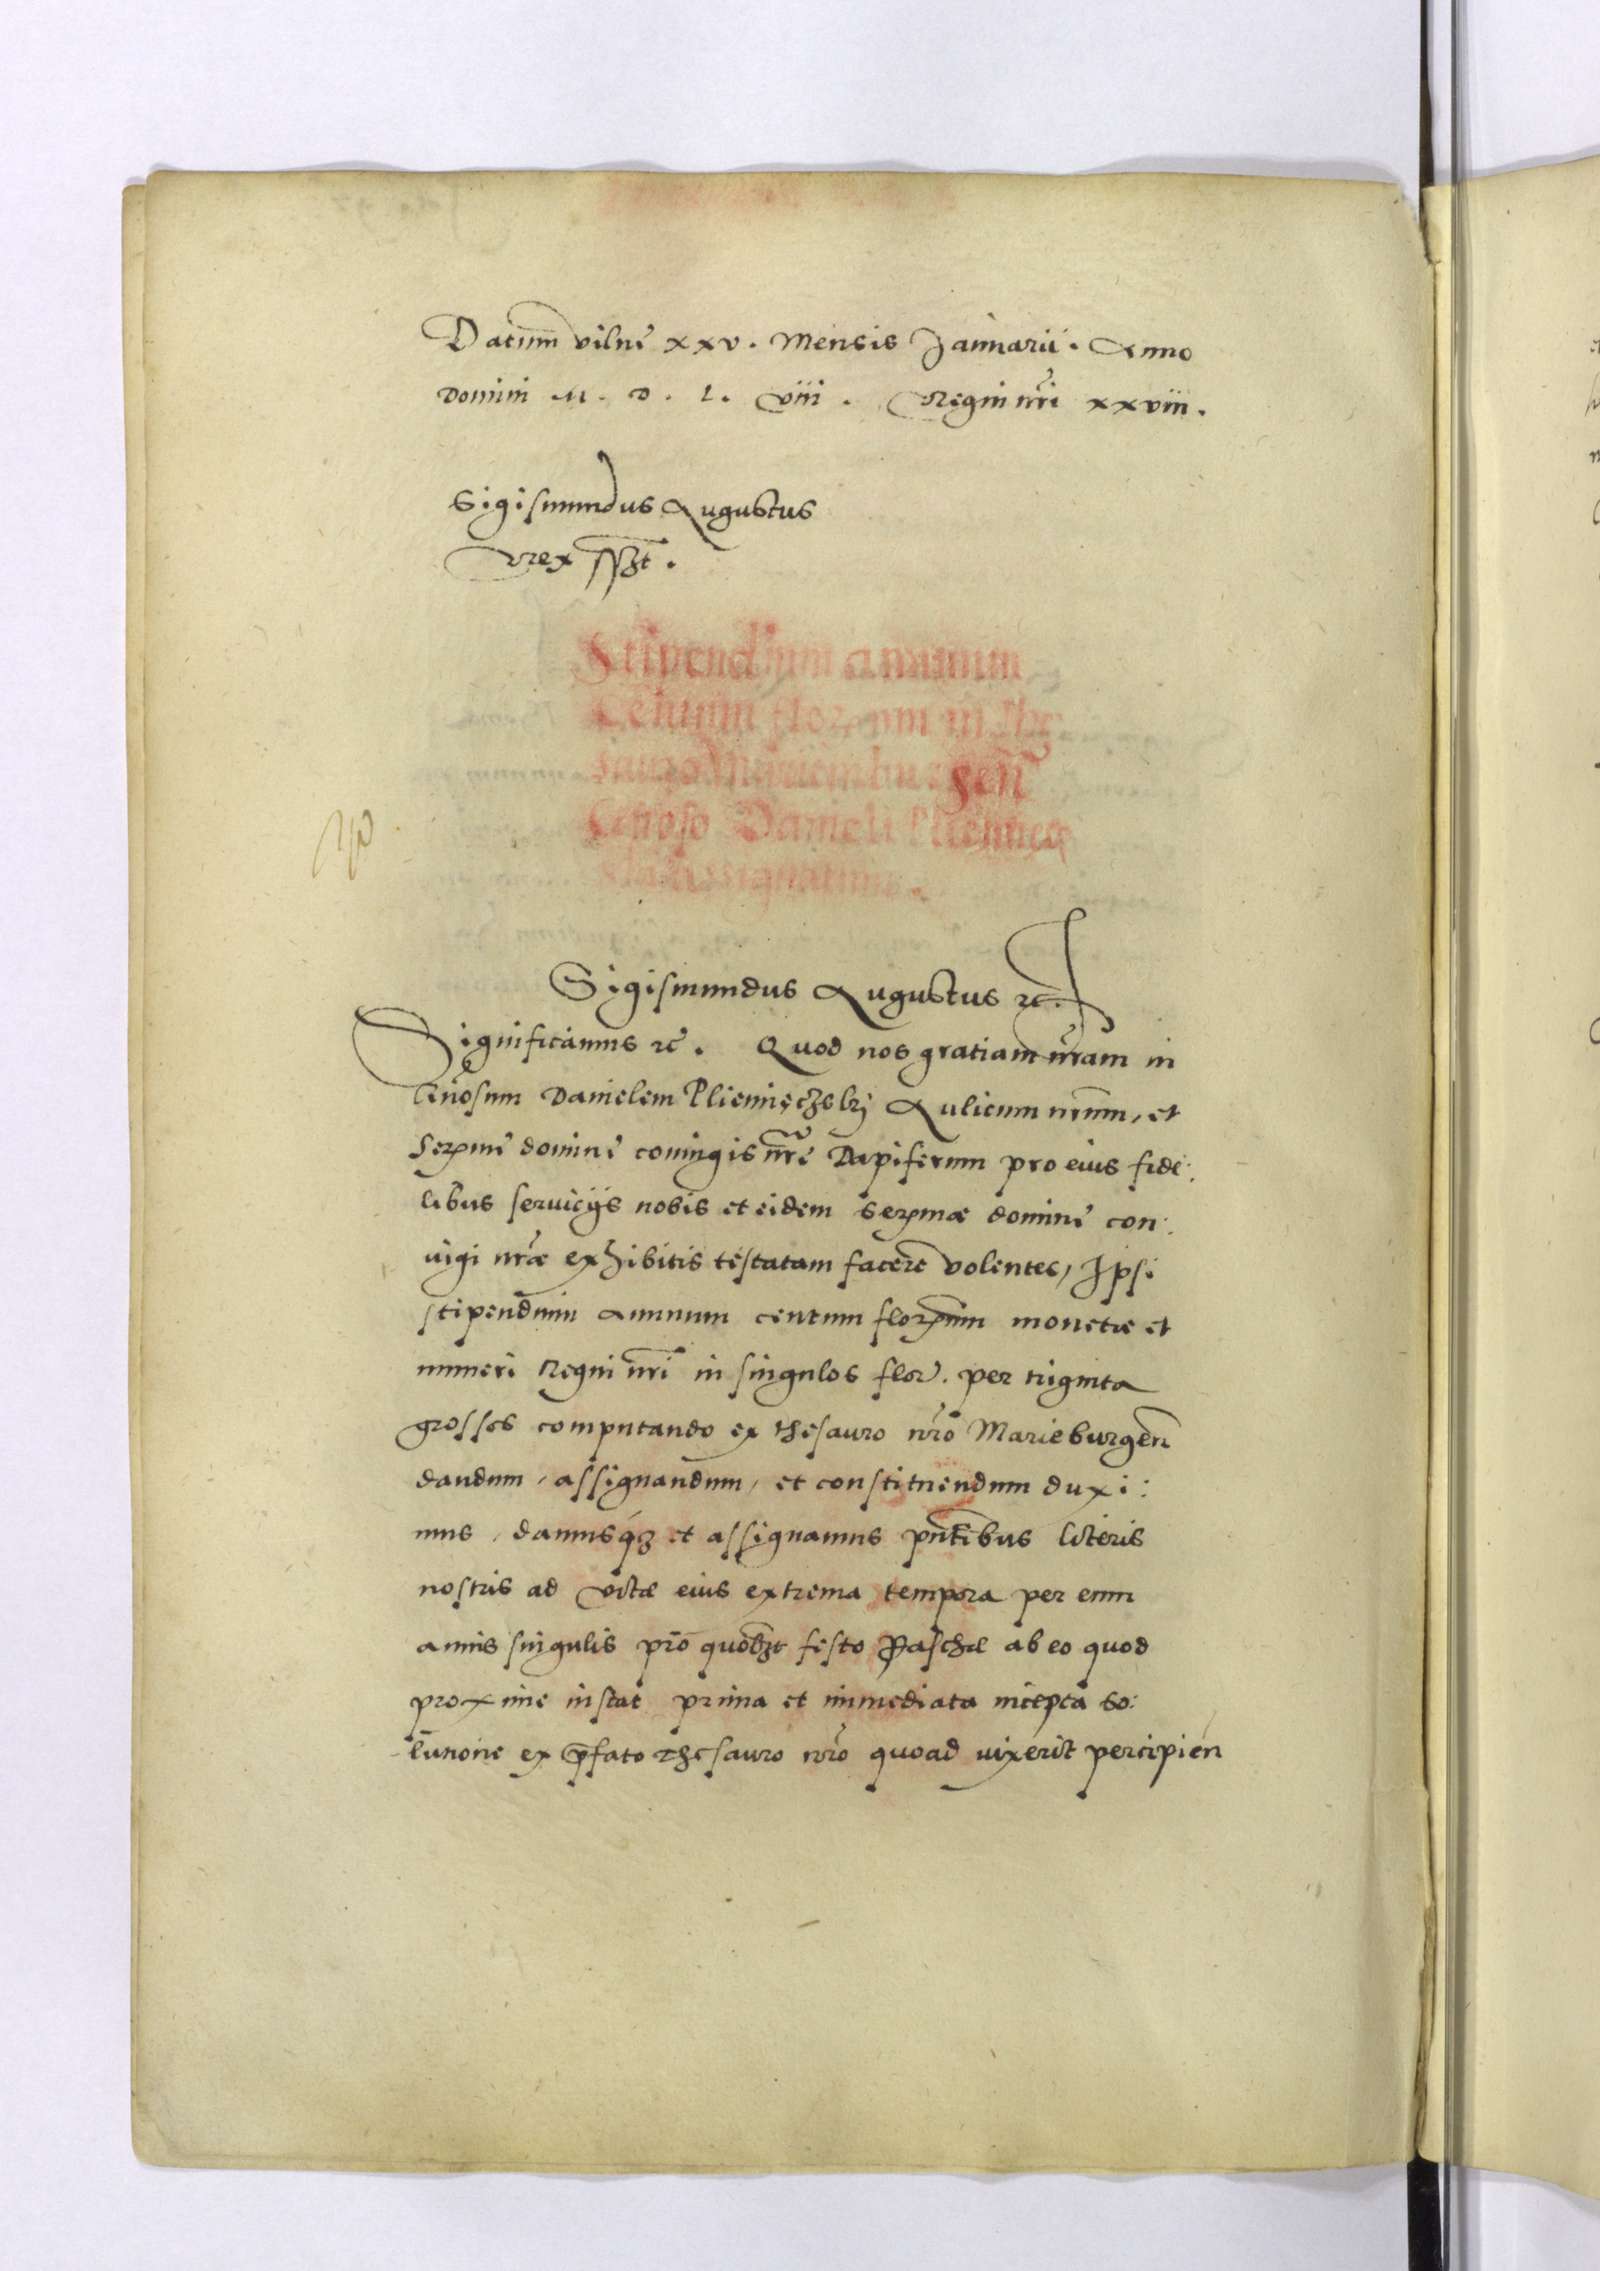 Datum vilne xxv. Mensis Januarii. Anno
Domini M. D. L. viii. Regni nr̃i xxviii.
Sigismundus Augustus
Rex sszt.
Stipendium annuum
Centum florenum in The
sauro Marienburgeñ
Gnoso Danieli Plemiec
ski assignatum.
Sigismundus Augustus ꝛc̃.
Significamus ꝛc̃. Quod nos gratiam nr̃am in
Gnõsum Danielem Plienięczski Aulicum nrũm, et
Serme domine coniugis nr̃e Dapiferum pro eius fide:
libus seruicijs nobis et eidem Sermæ domine con:
iugi nr̃æ exhibitis testatam facere volentes, Ipsi
stipendium annuum centum florenum monetæ et
numeri Regni nr̃i in singulos flor. per triginta
grossos computando ex thesauro nr̃o Marieburgeñ
dandum, assignandum, et constituendum duxi:
mus, damusq́ꝫ et assignamus pñtibus literis
nostris ad vitæ eius extrema tempora per eum
annis singulis pro quolꝫt festo Paschæ ab eo quod
proxime instat prima et immediata incepta so:
lutione ex p̃fato thesauro nr̃o quoad uixerit percipień